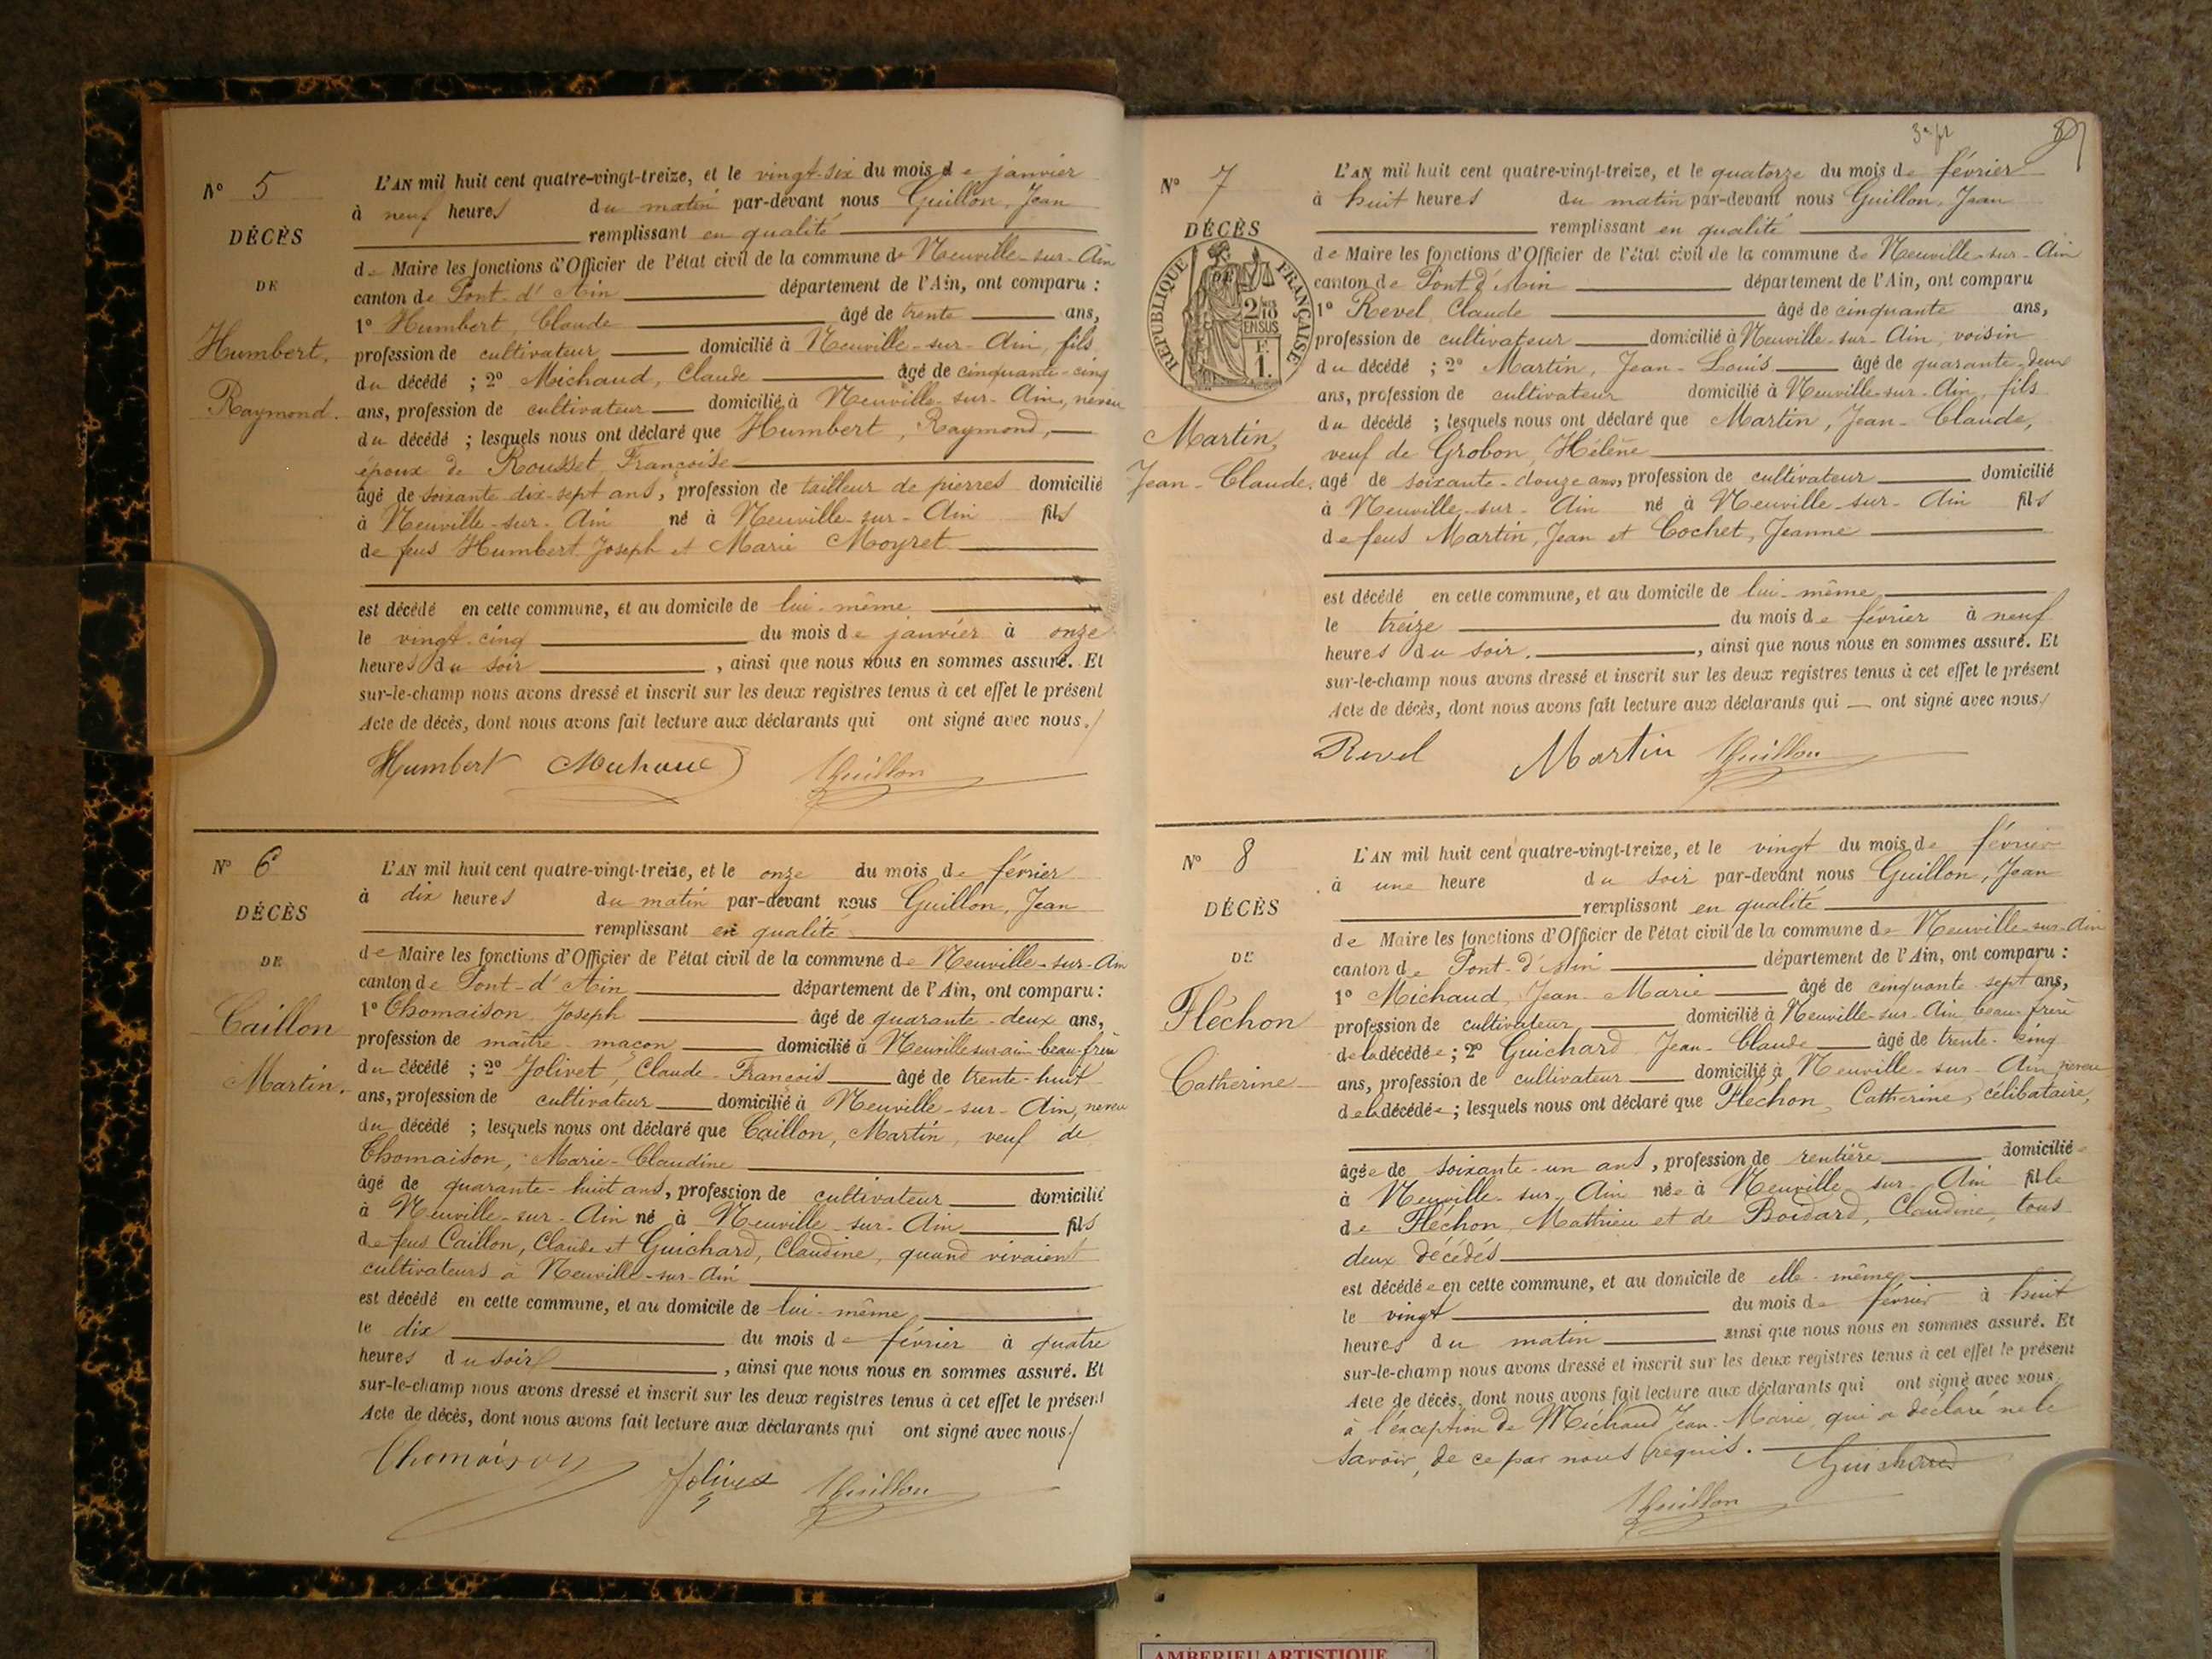 N° 5
DÉCÈS
DE
Humbert,
Raymond.
L'AN mil huit cent quatre-vingt-treize, et le vingt-six du mois de janvier
à neuf heures du matin par-devant nous Guillon, Jean
remplissant en qualité
de Maire les fonctions d'Officier de l'état civil de la commune de Neuville-sur-Ain
canton de Pont-d'Ain département de l'Ain, ont comparu :
1° Humbert, Claude âgé de trente ans,
profession de cultivateur domicilié à Neuville-sur-Ain, fils
du décédé ; 2° Michaud, Claude âgé de cinquante-cinq
ans, profession de cultivateur domicilié à Neuville-sur-Ain, neveu
du décédé ; lesquels nous ont déclaré que Humbert, Raymond,
époux de Rousset, Françoise
âgé de soixante-dix-sept ans, profession de tailleur de pierres domicilié
à Neuville-sur-Ain né à Neuville-sur-Ain fils
de feus Humbert Joseph et Marie Moyret
est décédé en cette commune, et au domicile de lui-même
le vingt-cinq du mois de janvier à onze
heures du soir , ainsi que nous nous en sommes assuré. Et
sur-le-champ nous avons dressé et inscrit sur les deux registres tenus à cet effet le présent
Acte de décès, dont nous avons fait lecture aux déclarants qui ont signé avec nous.
Humbert Michaud Guillon
N° 6
DÉCÈS
DE
Caillon
Martin.
L'AN mil huit cent quatre-vingt-treize, et le onze du mois de février
à dix heures du matin par-devant nous Guillon, Jean
remplissant en qualité
de Maire les fonctions d'Officier de l'état civil de la commune de Neuville-sur-Ain
canton de Pont-d'Ain département de l'Ain, ont comparu :
1° Thomaison Joseph âgé de quarante-deux ans,
profession de maître-maçon domicilié à Neuville sur ain beau-frère
du décédé ; 2° Jolivet, Claude-François âgé de trente-huit
ans, profession de cultivateur domicilié à Neuville-sur-Ain, neveu
du décédé ; lesquels nous ont déclaré que Caillon, Martin, veuf de
Thomaison, Marie-Claudine
âgé de quarante-huit ans, profession de cultivateur domicilié
à Neuville-sur-Ain né à Neuville-sur-Ain fils
de feus Caillon, Claude et Guichard, Claudine, quand vivaient
cultivateurs à Neuville-sur-Ain
est décédé en cette commune, et au domicile de lui-même
le dix du mois de février à quatre
heures du soir , ainsi que nous nous en sommes assuré. Et
sur-le-champ nous avons dressé et inscrit sur les deux registres tenus à cet effet le présent
Acte de décès, dont nous avons fait lecture aux déclarants qui ont signé avec nous.
Thomaison Jolivet Guillon
3e ft
N° 7
DÉCÈS
DE
RÉPUBLIQUE FRANÇAISE
2/10
EN SUS
F.
1.
Martin,
Jean-Claude.
L'AN mil huit cent quatre-vingt-treize, et le quatorze du mois de février
à huit heures du matin par-devant nous Guillon, Jean
remplissant en qualité
de Maire les fonctions d'Officier de l'état civil de la commune de Neuville-sur-Ain
canton de Pont-d'Ain département de l'Ain, ont comparu
1° Revel, Claude âgé de cinquante ans,
profession de cultivateur domicilié à Neuville-sur-Ain, voisin
du décédé ; 2° Martin, Jean-Louis âgé de quarante-deux
ans, profession de cultivateur domicilié à Neuville-sur-Ain, fils
du décédé ; lesquels nous ont déclaré que Martin, Jean-Claude,
veuf de Grobon, Hélène
âgé de soixante-douze ans, profession de cultivateur domicilié
à Neuville-sur-Ain né à Neuville-sur-Ain fils
de feus Martin, Jean et Cochet, Jeanne
est décédé en cette commune, et au domicile de lui-même
le treize du mois de février à neuf
heures du soir. , ainsi que nous nous en sommes assuré. Et
sur-le-champ nous avons dressé et inscrit sur les deux registres tenus à cet effet le présent
Acte de décès, dont nous avons fait lecture aux déclarants qui ont signé avec nous.
Revel Martin Guillon
N° 8
DÉCÈS
DE
Fléchon
Catherine
L'AN mil huit cent quatre-vingt-treize, et le vingt du mois de février
à une heure du soir par-devant nous Guillon, Jean
remplissant en qualité
de Maire les fonctions d'Officier de l'état civil de la commune de Neuville-sur-Ain
canton de Pont-d'Ain département de l'Ain, ont comparu :
1° Michaud, Jean-Marie âgé de cinquante-sept ans,
profession de cultivateur domicilié à Neuville-sur-Ain beau-frère
de la décédée ; 2° Guichard Jean-Claude âgé de trente-cinq
ans, profession de cultivateur domicilié à Neuville-sur-Ain neveu
de la décédée ; lesquels nous ont déclaré que Fléchon, Catherine, célibataire,
âgée de soixante-un ans, profession de rentière domiciliée
à Neuville-sur-Ain née à Neuville-sur-Ain fille
de Fléchon, Mathieu et de Boidard, Claudine, tous
deux décédés
est décédée en cette commune, et au domicile de elle-même
le vingt du mois de février à huit
heures du matin ainsi que nous nous en sommes assuré. Et
sur-le-champ nous avons dressé et inscrit sur les deux registres tenus à cet effet le présent
Acte de décès, dont nous avons fait lecture aux déclarants qui ont signé avec nous
à l'exception de Michaud Jean-Marie, qui a déclaré ne le
savoir, de ce par nous requis. Guichard
Guillon
AMBERIEU ARTISTIQUE